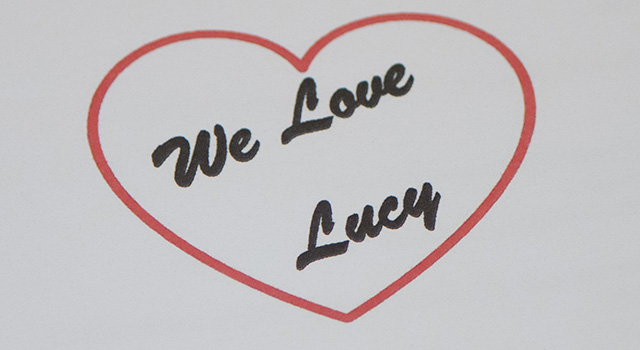 We Love
Lucy